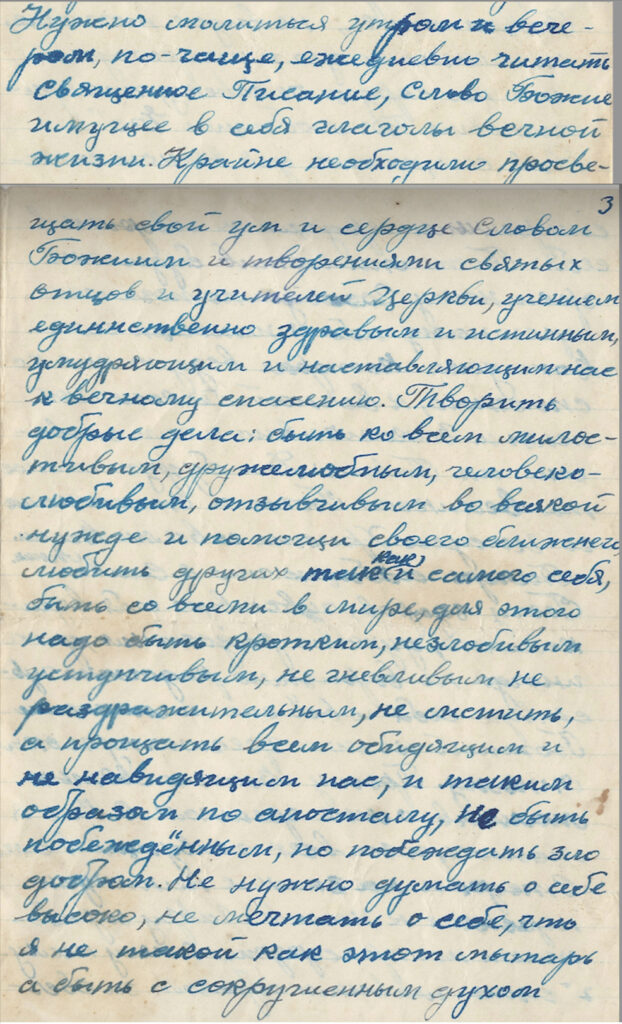 Нужно молиться утром и вече-
ром, по-чаще, ежедневно читать
Священное Писание, Слово Божие
имущее в себя глаголы вечной
жизни. Крайне необходимо просве-
3
щать свой ум и сердце Словом
Божиим и творениями святых
отцов и учителей Церкви, учением
единственно здравым и истинным,
умудряющим и наставляющим нас
к вечному спасению. Творить
добрые дела: быть ко всем милос-
тивым, дружелюбным, человеко-
любивым, отзывчивым во всякой
нужде и помощи своего ближнего,
как
любить других так и самого себя,
быть со всеми в мире, для этого
надо быть кротким, незлобивым
уступчивым, не гневливым, не
раздражительным, не мстить,
а прощать всем обидящим и
не навидящим нас, и таким
образом по апосталу, не быть
побеждённым, но побеждать зло
добром. Не нужно думать о себе
высоко, не мечтать о себе, что
я не такой как этот мытарь
а быть с сокрушенным духом